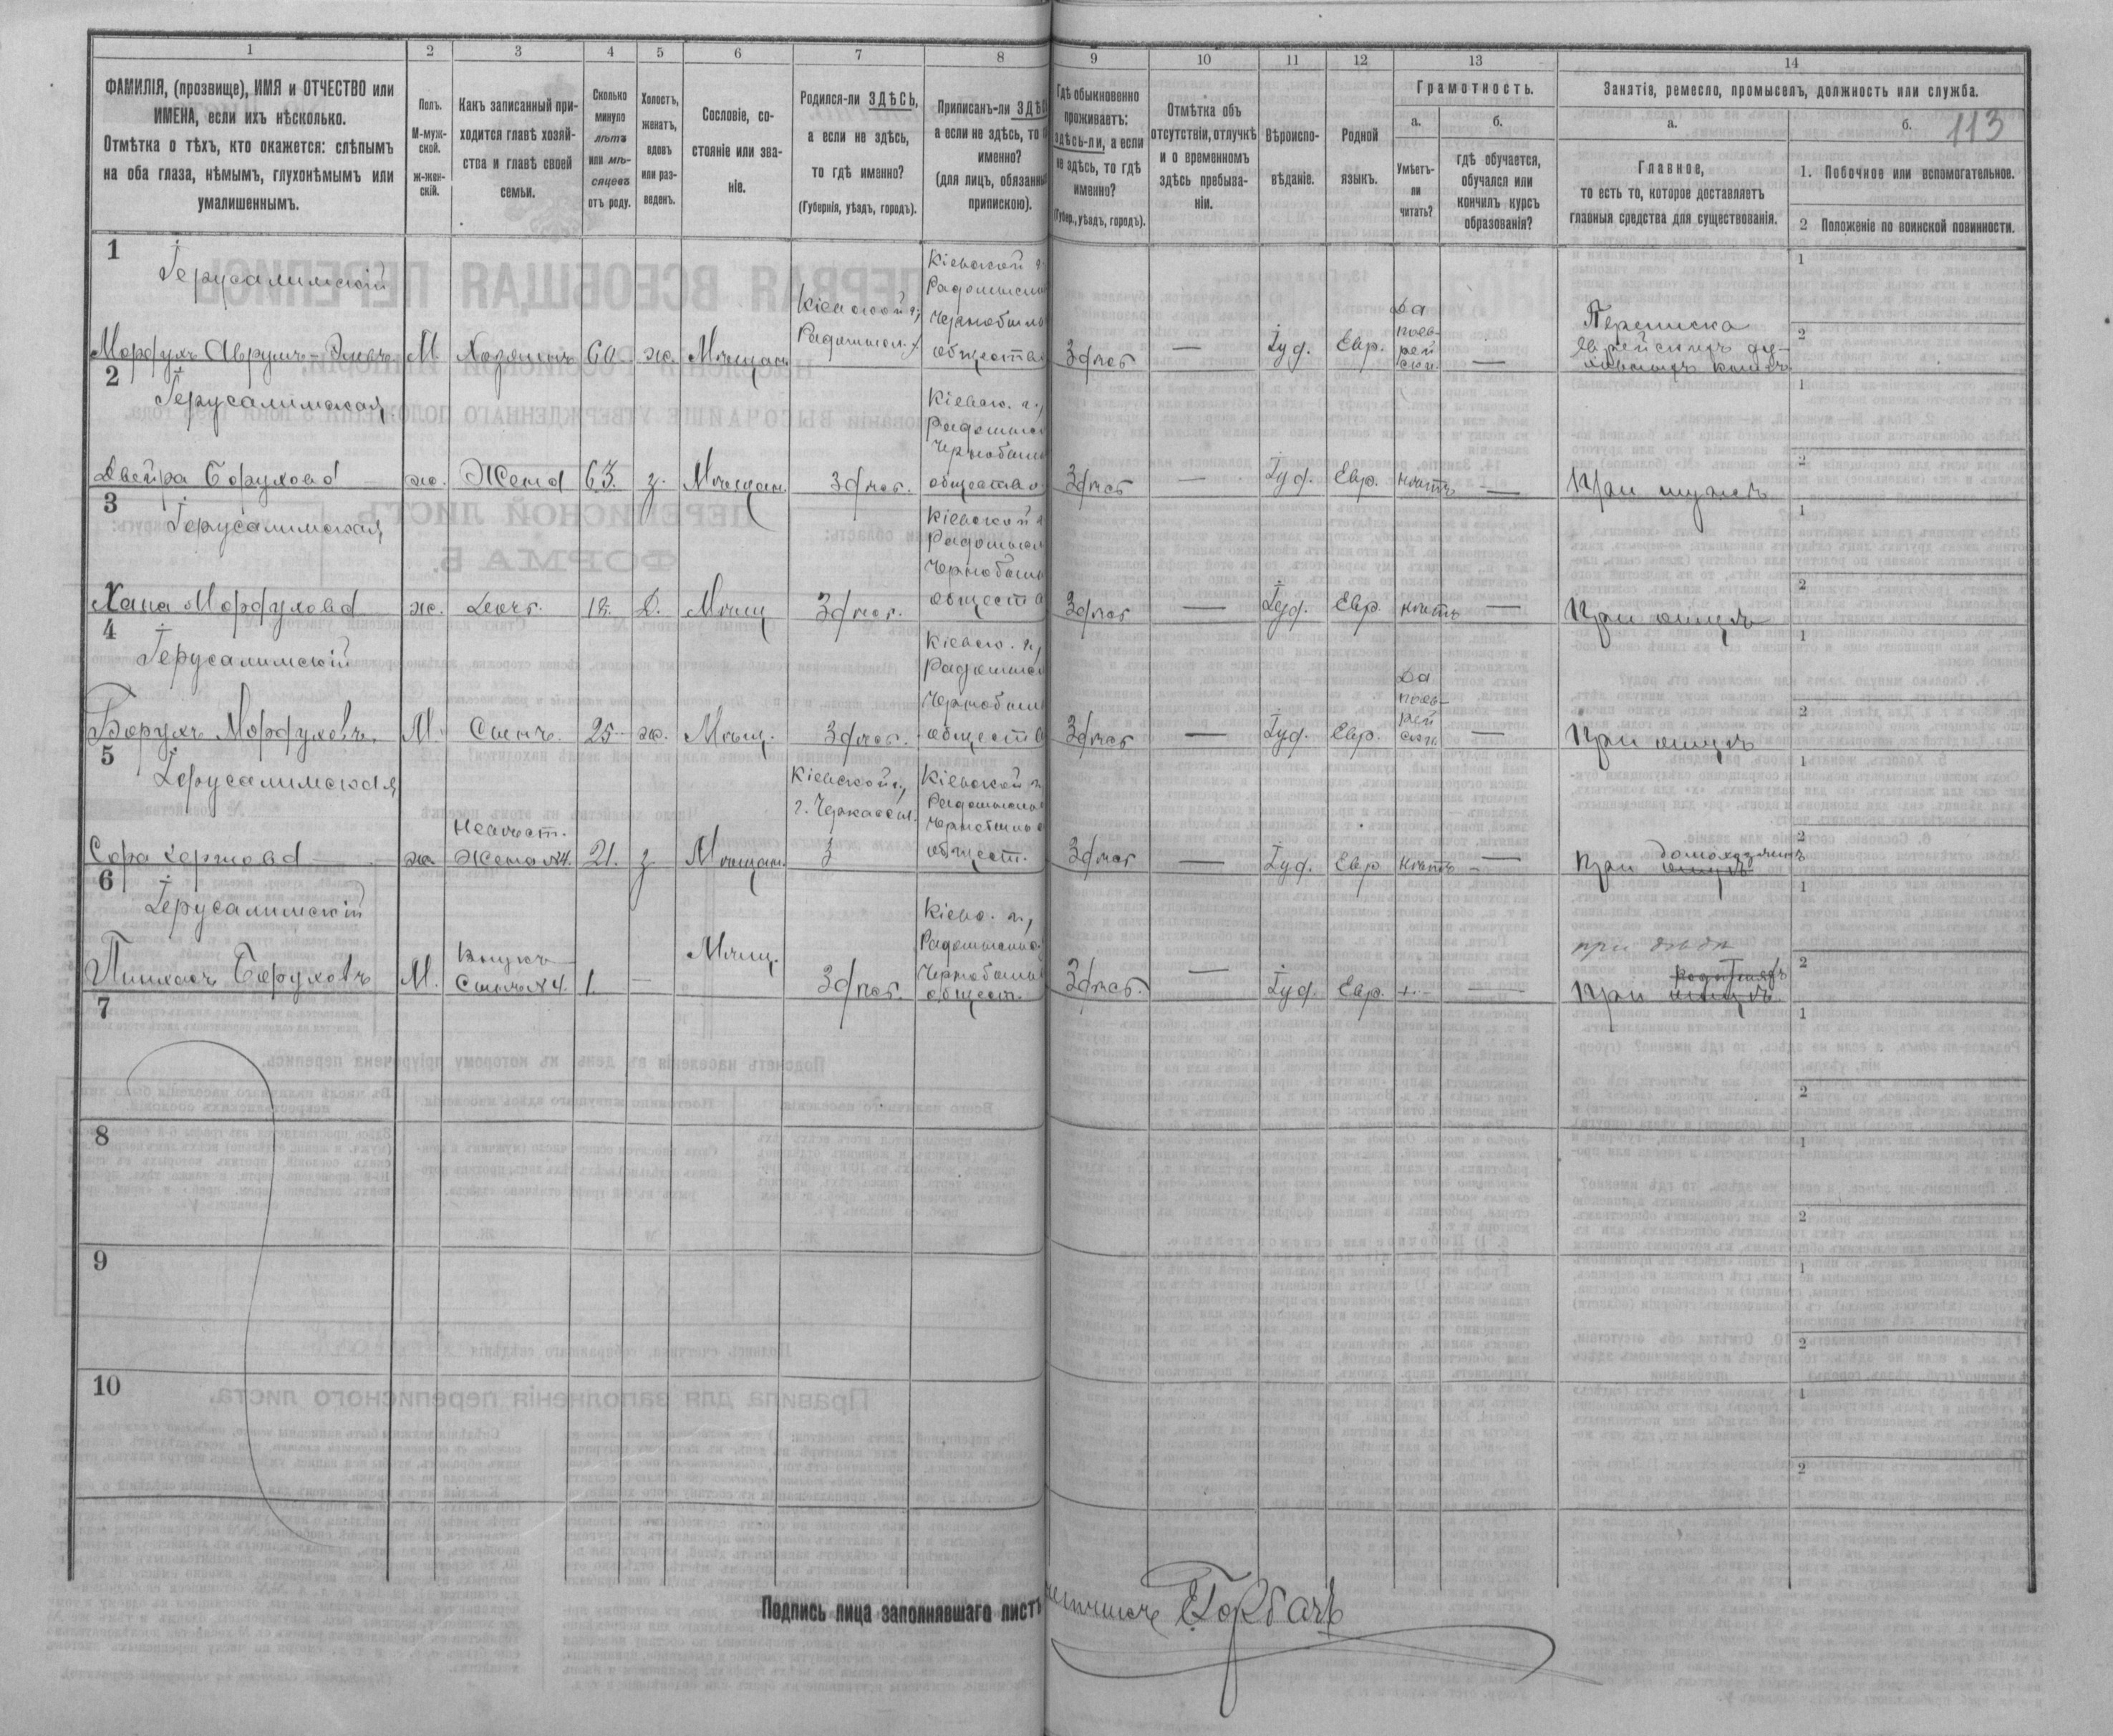 1
2
3
4
5
6
7
8
9
10
11
12
13
14
ФАМИЛІЯ, (прозвище), ИМЯ и ОТЧЕСТВО или
ИМЕНА, если ихъ нѣсколько.
Отмѣтка о тѣхъ, кто окажется: слѣпымъ
на оба глаза, нѣмымъ, глухонѣмымъ или
умалишеннымъ.
Полъ.
М-муж-
ской.
ж-жен-
скій.
Какъ записанный при-
ходится главѣ хозяй-
ства и главѣ своей
семьи.
Сколько
минуло
лѣтъ
или мѣ-
сяцевъ
отъ роду.
Холостъ,
женатъ,
вдовъ
или раз-
веденъ.
Сословіе, со-
стояніе или зва-
ніе.
Родился-ли ЗДѢСЬ,
а если не здѣсь,
то гдѣ именно?
(Губернія, уѣздъ, городъ).
Приписанъ-ли ЗДѢ
а если не здѣсь, то
именно?
(для лицъ, обязанны
припискою).
Гдѣ обыкновенно
проживаетъ:
здѣсь-ли, а если
не здѣсь, то гдѣ
именно?
(Губер., уѣздъ, городъ).
Отмѣтка объ
отсутствіи, отлучкѣ
и о временномъ
здѣсь пребыва-
ніи.
Вѣроиспо-
вѣданіе.
Родной
языкъ.
Грамотность.
а.
Умѣетъ-
ли
читать?
б.
гдѣ обучается,
обучался или
кончилъ курсъ
образованія?
Занятіе, ремесло, промыселъ, должность или служба.
а.
Главное,
то есть то, которое доставляетъ
главныя средства для существованія.
б.
113
1. Побочное или вспомогательное.
2 Положеніе по воинской повинности.
1
Іерусалимскій
Мордухъ Аврумъ-
М
Хозяинъ
60
ж.
Мѣщан.
Кіевской г.,
Радомысл.
Кіевской г.
Радомысл
Чернобыль
общества
Здѣсь
—
Іуд.
Евр.
Да
поев-
рей
ски.
—
Переписка
Еврейскихъ ду-
ховныхъ книгъ
1
2
2
Іерусалимская
Двейра Борухова
ж.
Жена
63.
з.
Мѣщан.
Здѣсь.
Кіевск. г.,
Радомысл
Чернобыль
общества
Здѣсь
—
Іуд.
Евр.
нѣтъ
—
При мужѣ
1
2
3
Іерусалимская
Хана Мордухова
ж.
Дочь.
18.
Д.
Мѣщ
Здѣсь.
Кіевской г
Радомысл
Чернобыль
обществ
Здѣсь
—
Іуд.
Евр.
нѣтъ
—
При отцѣ
1
2
4
Іерусалимскій
Борухъ Мордуховъ.
М.
Сынъ.
25
ж.
Мѣщ.
Здѣсь.
Кіевск. г.,
Радомысл
Чернобыль
обществ
Здѣсь
—
Іуд.
Евр.
Да
поев-
рей
ски.
—
При отцѣ
1
2
5
Іерусалимская
Сора
ж.
Невѣст.
Жена №4.
21.
з
Мѣщан.
Кіевской г.,
г. Черкассы.
Кіевской г.
Радомысл
Чернобыль
общест.
Здѣсь
—
Іуд.
Евр
нѣтъ
—
При домохозяинѣ
1
2
6
Іерусалимскій
Пинхасъ Боруховъ
М.
Внукъ
Сынъ №4.
1.
—
Мѣщ.
Здѣсь.
Кіевс. г.,
Радомысл
Чернобыль
общест.
Здѣсь.
—
Іуд.
Евр.
—
при дѣдѣ
При
1
2
7
1
2
8
1
2
9
1
2
10
1
2
Подпись лица заполнявшаго листъ
Горбачъ